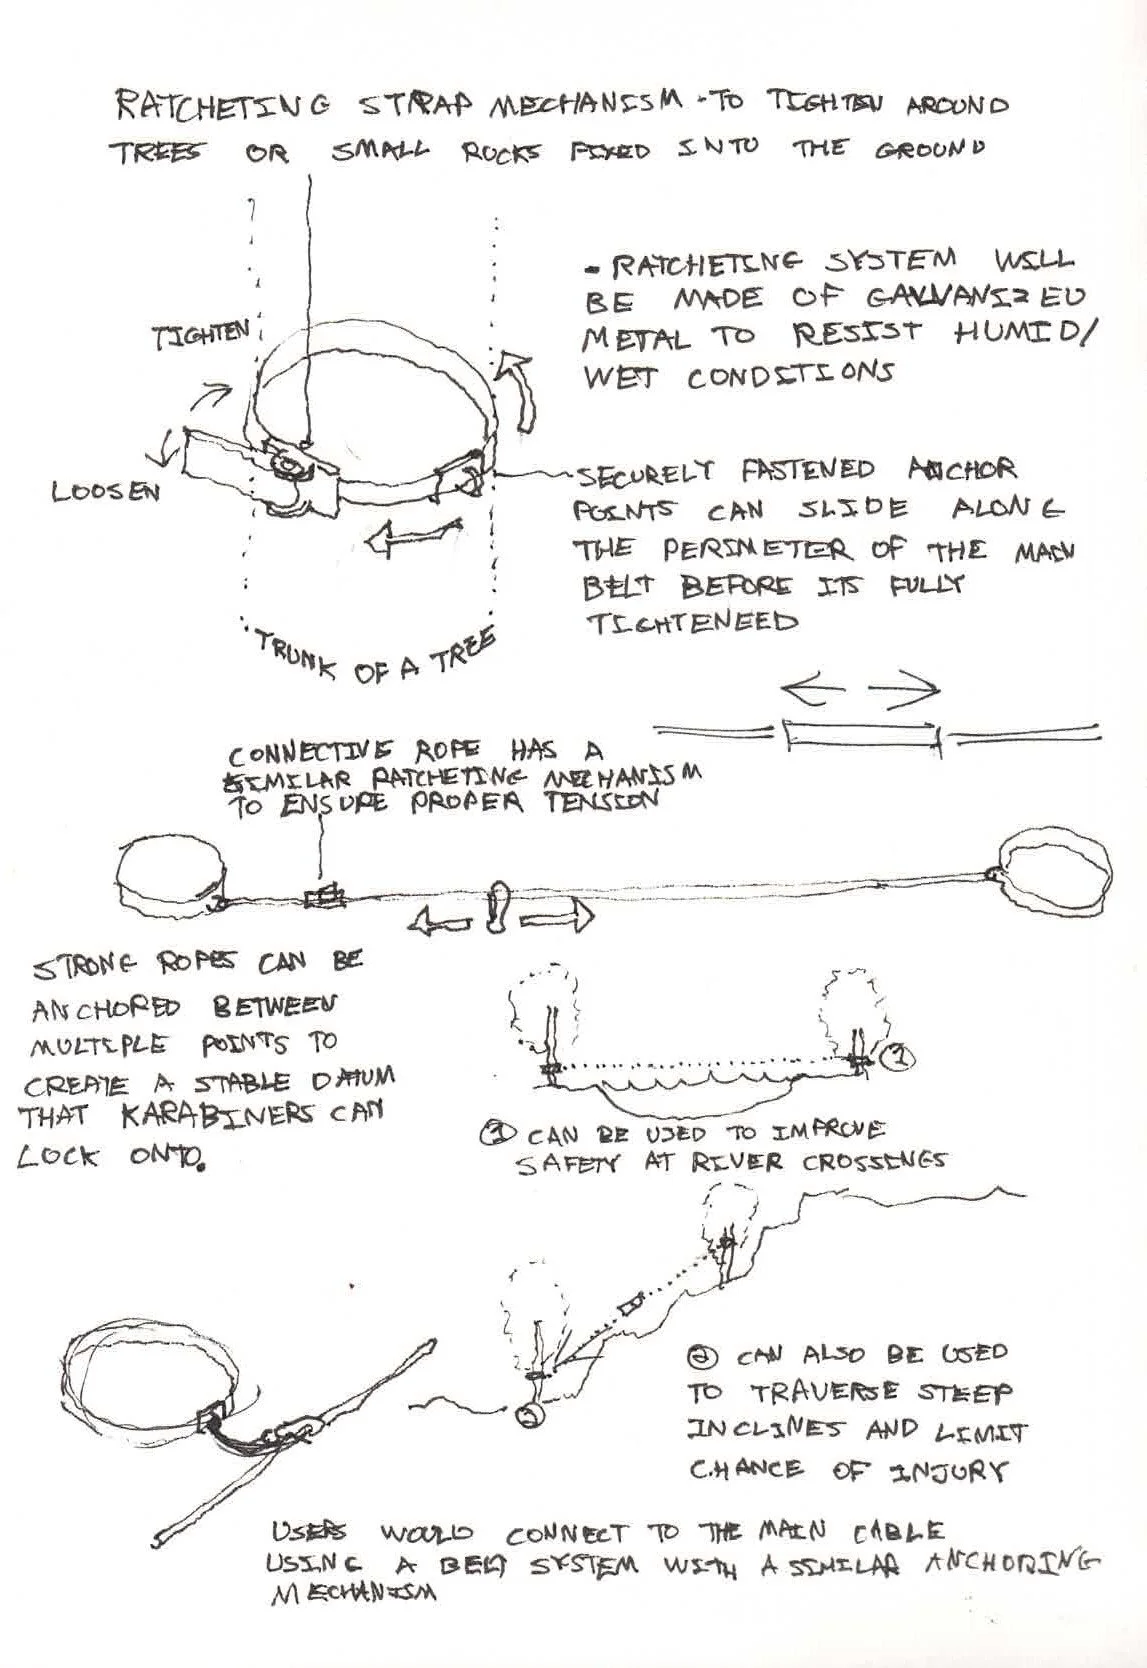 RATCHETING STRAP MECHANISM - TO TIGHTEN AROUND
TREES OR SMALL ROCKS FIXED INTO THE GROUND
- RATCHETING SYSTEM WILL
BE MADE OF GALVANIZED
METAL TO RESIST HUMID/
WET CONDITIONS
TIGHTEN
LOOSEN
SECURELY FASTENED ANCHOR
POINTS CAN SLIDE ALONG
THE PERIMETER OF THE MAIN
BELT BEFORE ITS FULLY
TIGHTENEED
TRUNK OF A TREE
CONNECTIVE ROPE HAS A
SIMILAR RATCHETING MECHANISM
TO ENSURE PROPER TENSION
STRONG ROPES CAN BE
ANCHORED BETWEEN
MULTIPLE POINTS TO
CREATE A STABLE DATUM
THAT KARABINERS CAN
LOCK ONTO.
1
1 CAN BE USED TO IMPROVE
SAFETY AT RIVER CROSSINGS
2
2 CAN ALSO BE USED
TO TRAVERSE STEEP
INCLINES AND LIMIT
CHANCE OF INJURY
USERS WOULD CONNECT TO THE MAIN CABLE
USING A BELT SYSTEM WITH A SIMILAR ANCHORING
MECHANISM